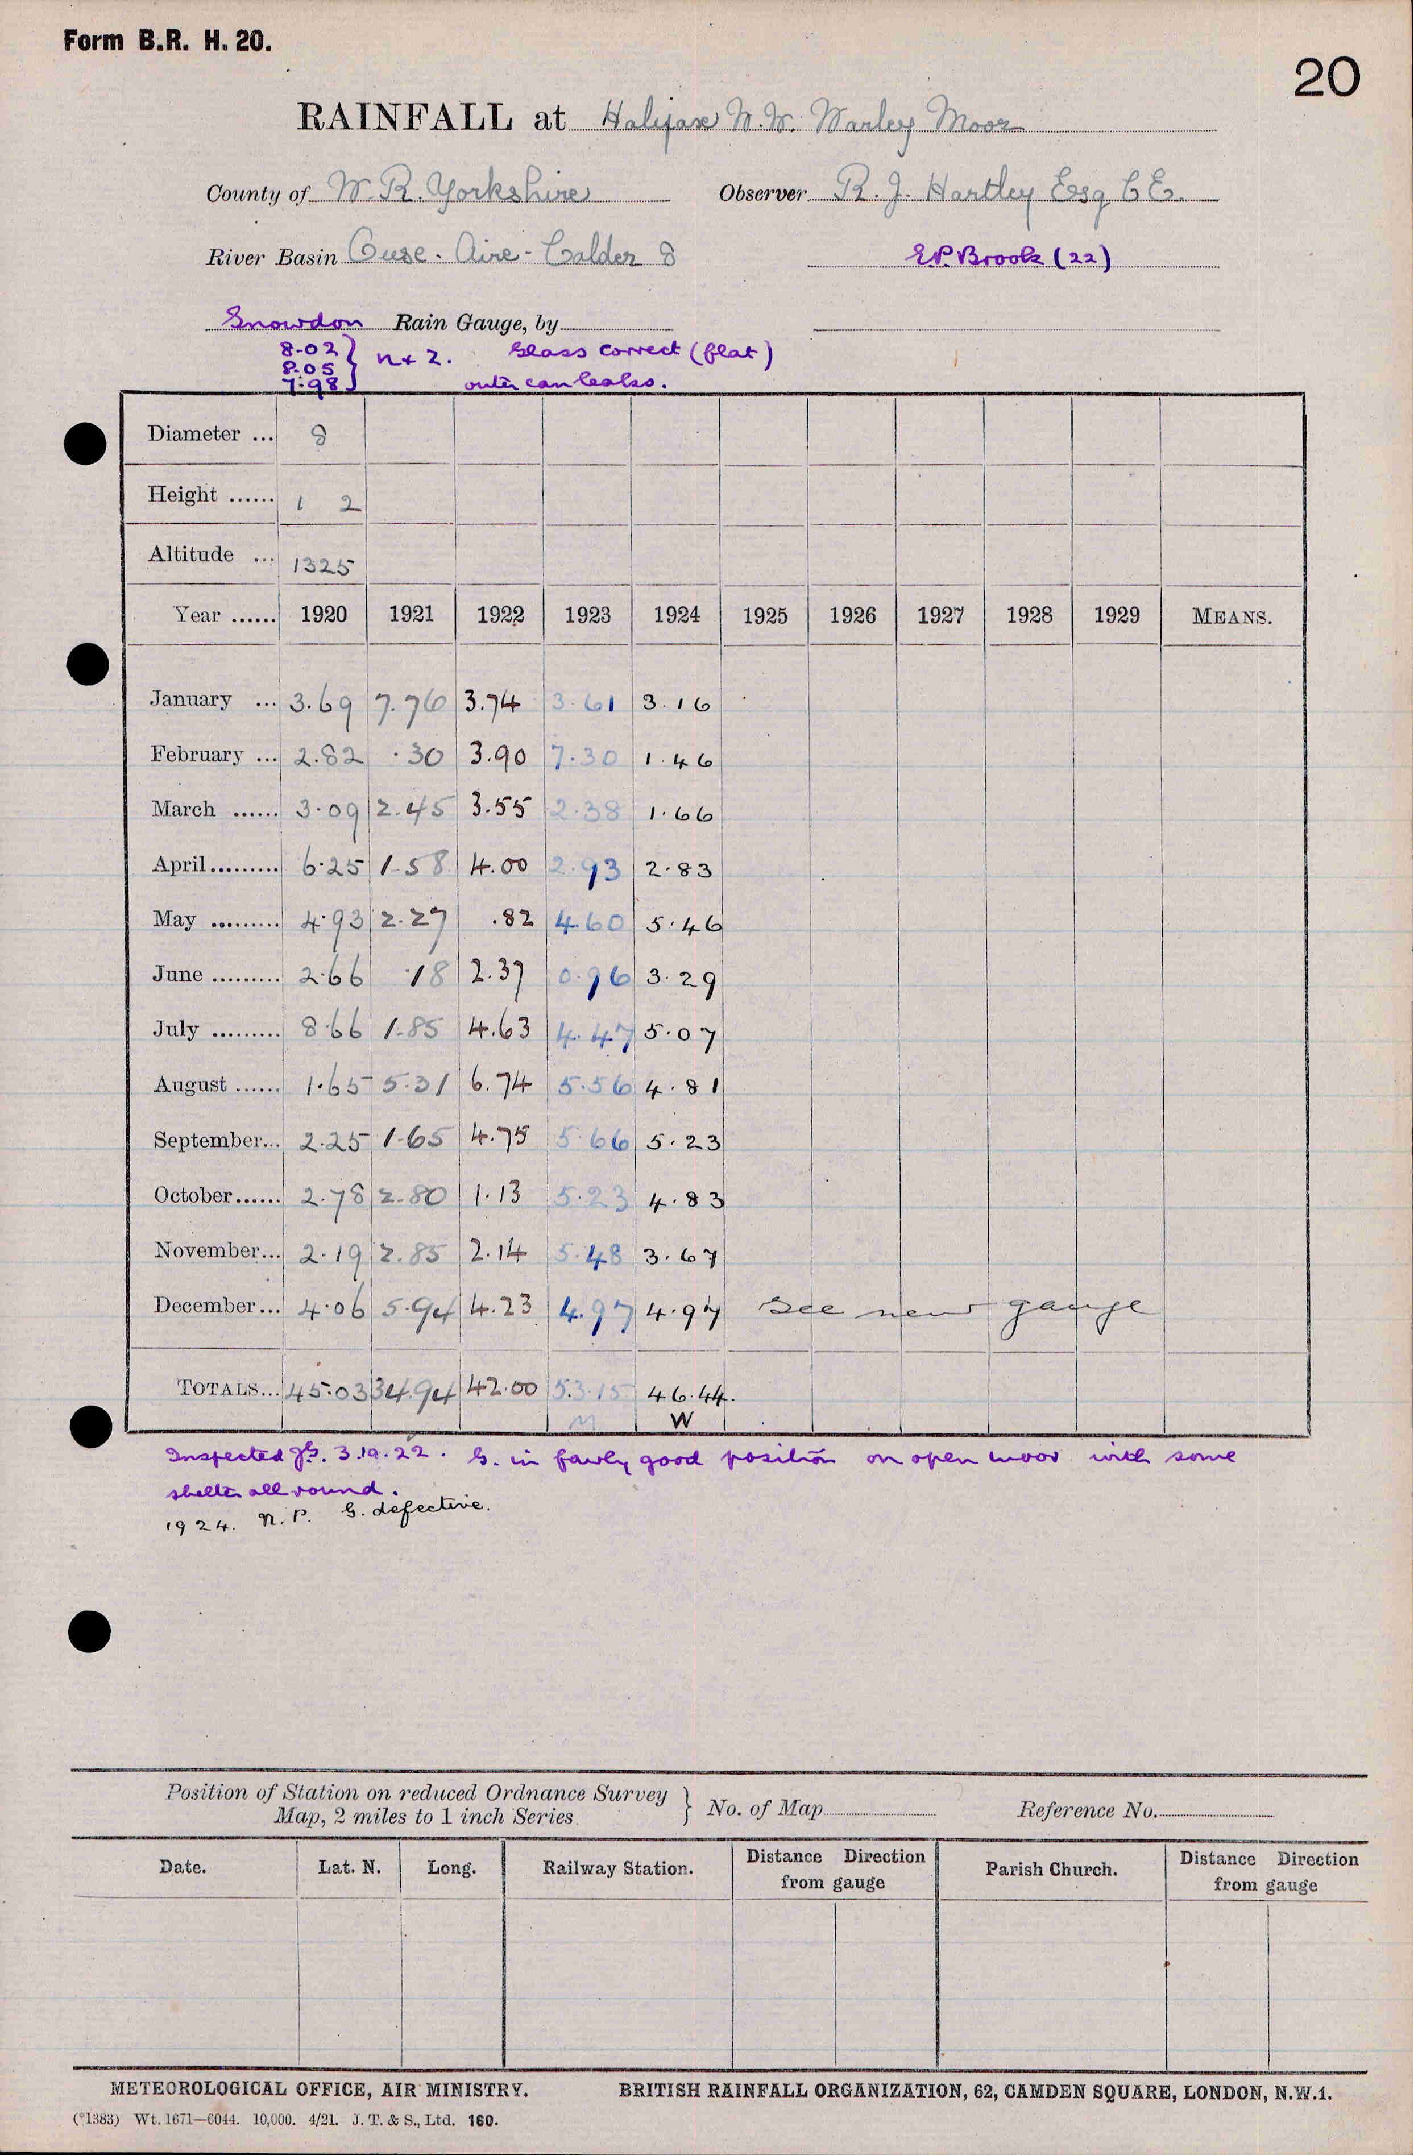 Form B.R. H. 20.
20
RAINFALL at Halifax W.W. Warley Moor
County of W. R. Yorkshire Observer R. J. Hartley Esq C E.
River Basin Ouse - Aire - Calder 8 E.P. Brook (22)
Snowdon Rain Gauge, by
8.02 } n+2. Glass correct (flat)
8.05
7.98 outer can leaks.
Diameter ... 8
Height ...... 1 2
Altitude ... 1325
Year ...... 1920 1921 1922 1923 1924 1925 1926 1927 1928 1929 MEANS.
January ... 3.69 7.76 3.74 3.61 3.16
February ... 2.82 .30 3.90 7.30 1.46
March ...... 3.09 2.45 3.55 2.38 1.66
April......... 6.25 1.58 4.00 2.93 2.83
May ......... 4.93 2.27 .82 4.60 5.46
June ......... 2.66 .18 2.37 0.96 3.29
July ......... 8.66 1.85 4.63 4.47 5.07
August ...... 1.65 5.31 6.74 5.56 4.81
September... 2.25 1.65 4.75 5.66 5.23
October...... 2.78 2.80 1.13 5.23 4.83
November... 2.19 2.85 2.14 5.48 3.67
December... 4.06 5.94 4.23 4.97 4.97 See new gauge
TOTALS... 45.03 34.94 42.00 53.15 46.44.
M W
Inspected 3.10.22. G. in fairly good position on open moor with some
shelter all round.
1924. N.P. G. defective.
Position of Station on reduced Ordnance Survey
Map, 2 miles to 1 inch Series } No. of Map Reference No.
Date. Lat. N. Long. Railway Station. Distance Direction from gauge Parish Church. Distance Direction from gauge
METEOROLOGICAL OFFICE, AIR MINISTRY. BRITISH RAINFALL ORGANIZATION, 62, CAMDEN SQUARE, LONDON, N.W.1.
(*1383) Wt. 1671—6044. 10,000. 4/21. J. T. & S., Ltd. 160.